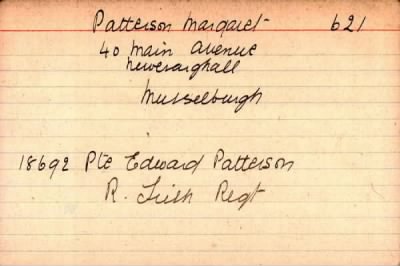 Patterson Margaret 621
40 Main Avenue
Newcraighall
Musselburgh
18692 Pte Edward Patterson
R. Irish Regt